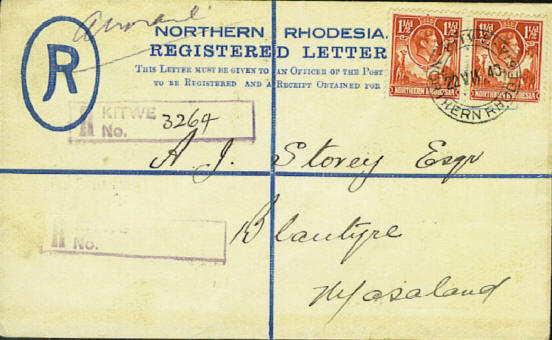 NORTHERN RHODESIA.
REGISTERED LETTER
THIS LETTER MUST BE GIVEN TO AN OFFICER OF THE POST
TO BE REGISTERED AND A RECEIPT OBTAINED FOR
R
1½d 1½d
NORTHERN RHODESIA NORTHERN RHODESIA
R KITWE
No. 3264
A. J. Storey Esqr
R
No.
Blantyre
Nyasaland